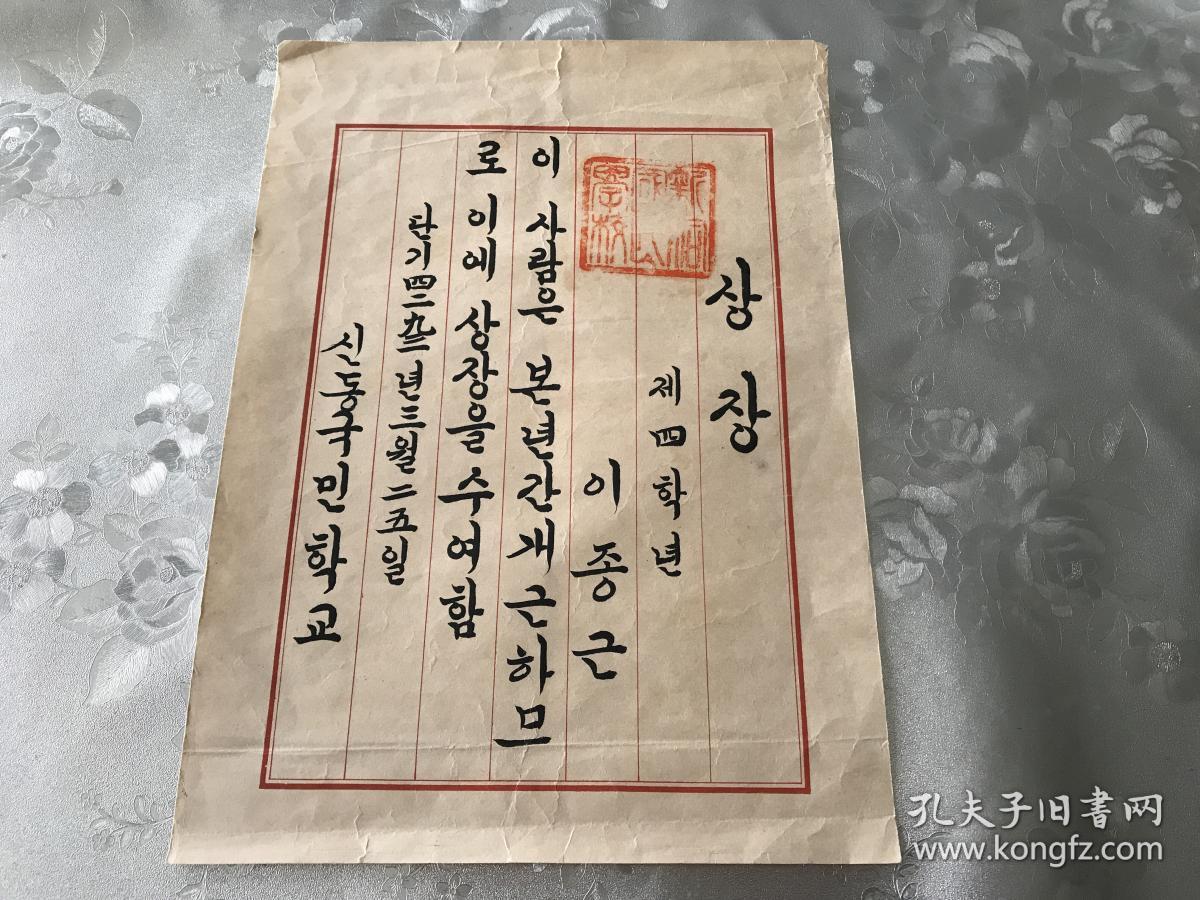 상장
제四학년
이종근
이 사람은 본년간개근하므
로 이에 상장을 수여함
단기四二九三년三월二五일
신동국민학교
學校
孔夫子旧书网
www.kongfz.com